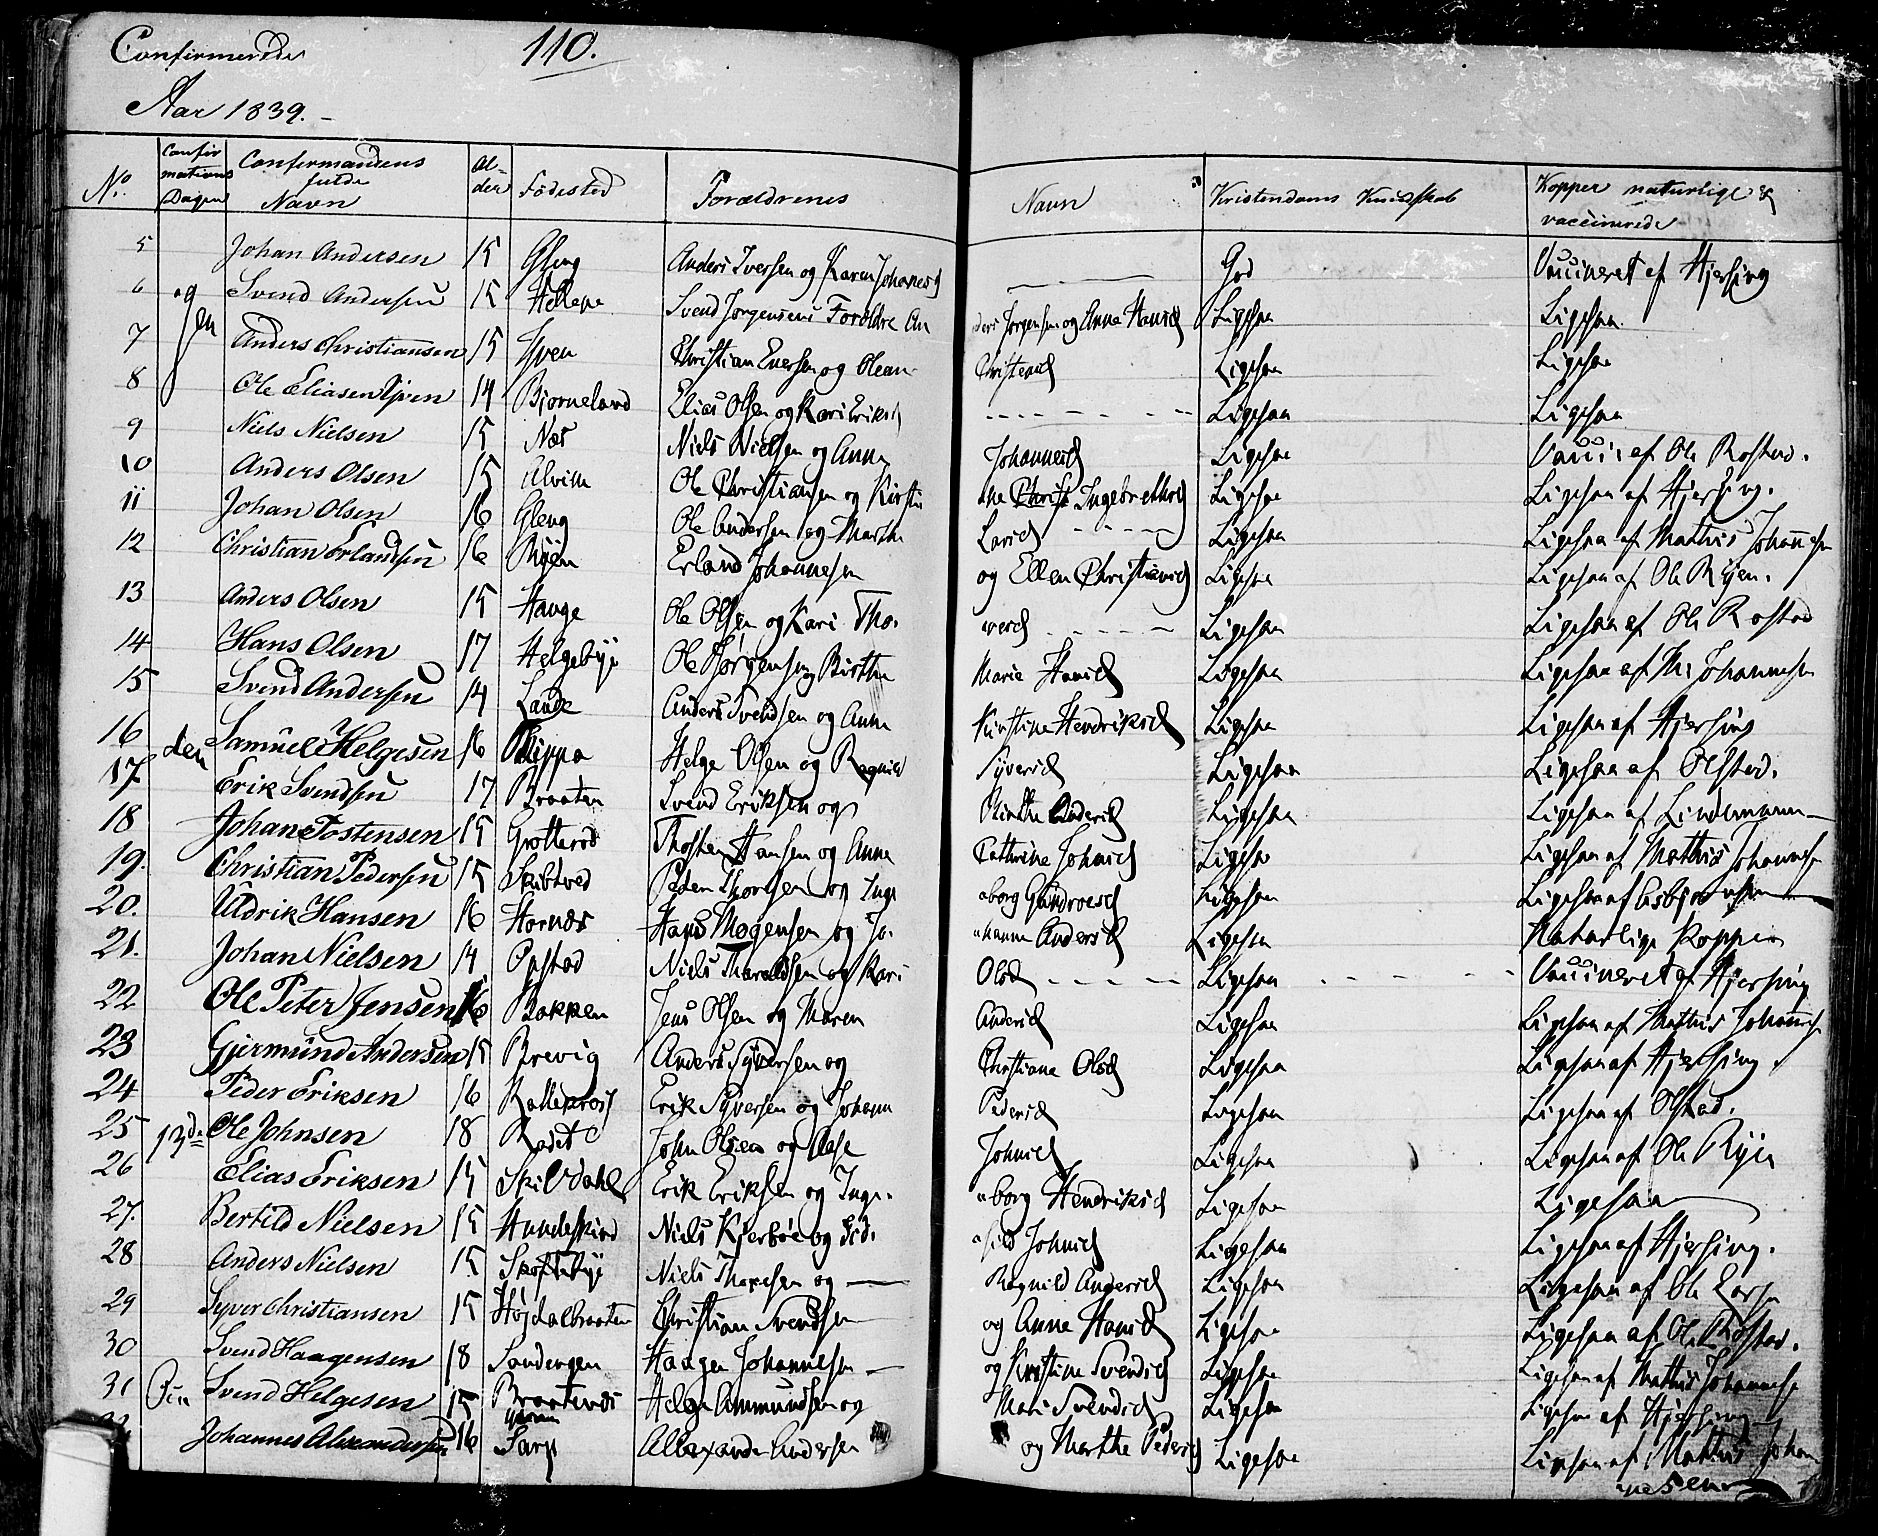 Confirmerede 110.
Aar 1839.-
No. Confirmations Dagen Confirmandens fulde Navn Alder Fødested Forældrenes Navn Kristendoms Kundskab Kopper naturlige & vaccinerede
5 Johan Andersen 15 Gleng Anders Iversen og Karen Johanesd God Vaccineret af Hjersing
6 og Svend Andersen Svend Jørgensens Foroldre Anders Jørgensen og Anna Hansd Ligesaa Ligesaa
7 Anders Christiansen 15 Christian Eversen og Olean Christensd Ligesaa Ligesaa
8 Ole Eliasen 14 Bjorneland Elias Olsen og Kari Eriksd Ligesaa Ligesaa
9 Niels Nielsen 15 Næs Niels Nielsen og Anna Johannesd Ligesaa af Ole Rostad.
10 Anders Olsen 15 Ole Christiansen og Kirstine Ingebrethsd Ligesaa Ligesaa af Hjersing.
11 Johan Olsen 16 Gleng Ole Andersen og Marthe Larsd Ligesaa Ligesaa af Mathis Johannesen
12 Christian Erlandsen 16 Erland Johannesen og Ellen Christiansd Ligesaa Ligesaa af Ole Ryen.
13 Anders Olsen 15 Hauge Ole Olsen og Kari Tho- Ligesaa Ligesaa af Ole Rostad
14 Hans Olsen 17 Helgebye Ole Jørgensen og Birthe Marie Hansd Ligesaa Ligesaa af M: Johannesen
15 Svend Andersen 14 Lande Anders Svendsen og Anne Kirstine Hendriksd Ligesaa Ligesaa af Hjersing
16 den Samuel Helgesen 16 Helge Olsen og Ragnild Syversd Ligesaa Ligesaa af Olstad.
17 Erik Svendsen 17 Braaten Svend Eriksen og Andersd Ligesaa Ligesaa af Lindemann
18 Johan Tostensen 15 Grotterød Thosten Hansen og Anna Cathrine Johnsd Ligesaa Ligesaa af Mathis Johannesen
19. Christian Pedersen 15 Skibtved Peder Thoresen og Inge- borg Ligesaa Ligesaa af
20. Uldrik Hansen 16 Hornæs Hans Mogensen og Jo- hanna Andersd Ligesaa Naturlige Kopper
21. Johan Nielsen 14 Opstad Niels Tharaldsen og Kari Olsd Ligesaa Vaccineret af Hjersing
22 Ole Peter Jensen 16 Bakken Jens Olsen og Maren Andersd Ligesaa Ligesaa af Mathis Johannesen
23 Gjermund Andersen 15 Brevig Anders Syversen og Christiana Olsd Ligesaa Ligesaa af Hjersing
24 Peder Eriksen 16 Erik Syversen og Johann Pedersd Ligesaa Ligesaa af Olstad.
25 13de Ole Johnsen 18 John Olsen og Aase Johnsd Ligesaa Ligesaa af Ole Ryen
26 Elias Eriksen 15 Erik Eriksen og Inge- borg Hendriksd Ligesaa Ligesaa
27. Bertild Nielsen 15 Niels Kjerbøe og Johnsd Ligesaa Ligesaa af Hjersing.
28 Anders Nielsen 15 Skoftebye Niels Thoresen og Ragnild Andersd Ligesaa Ligesaa af Ole
29 Syver Christiansen 15 Højdalbraaten Christian Svendsen og Anne Hansd Ligesaa Ligesaa af Ole Rostad.
30 Svend Haagensen 18 Haagen Johannesen og Kirstine Svendsd Ligesaa Ligesaa af Mathis Johannesen
31 Svend Helgesen 15 Helge Ammundsen og Mari Svendsd Ligesaa Ligesaa af Hjersing
Johannes Alexandersen 16 Sarp Allexander Andersen og Marthe Pedersd Ligesaa Ligesaa af Mathis Johan
nesen